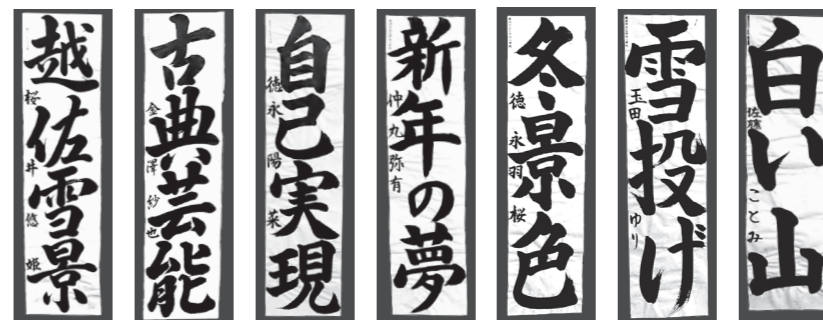 越佐雪景
桜井悠姫
古典芸能
金澤紗也
自己実現
徳永陽菜
新年の夢
仲丸弥有
冬景色
徳永羽桜
雪投げ
玉田ゆり
白い山
佐藤ことみ